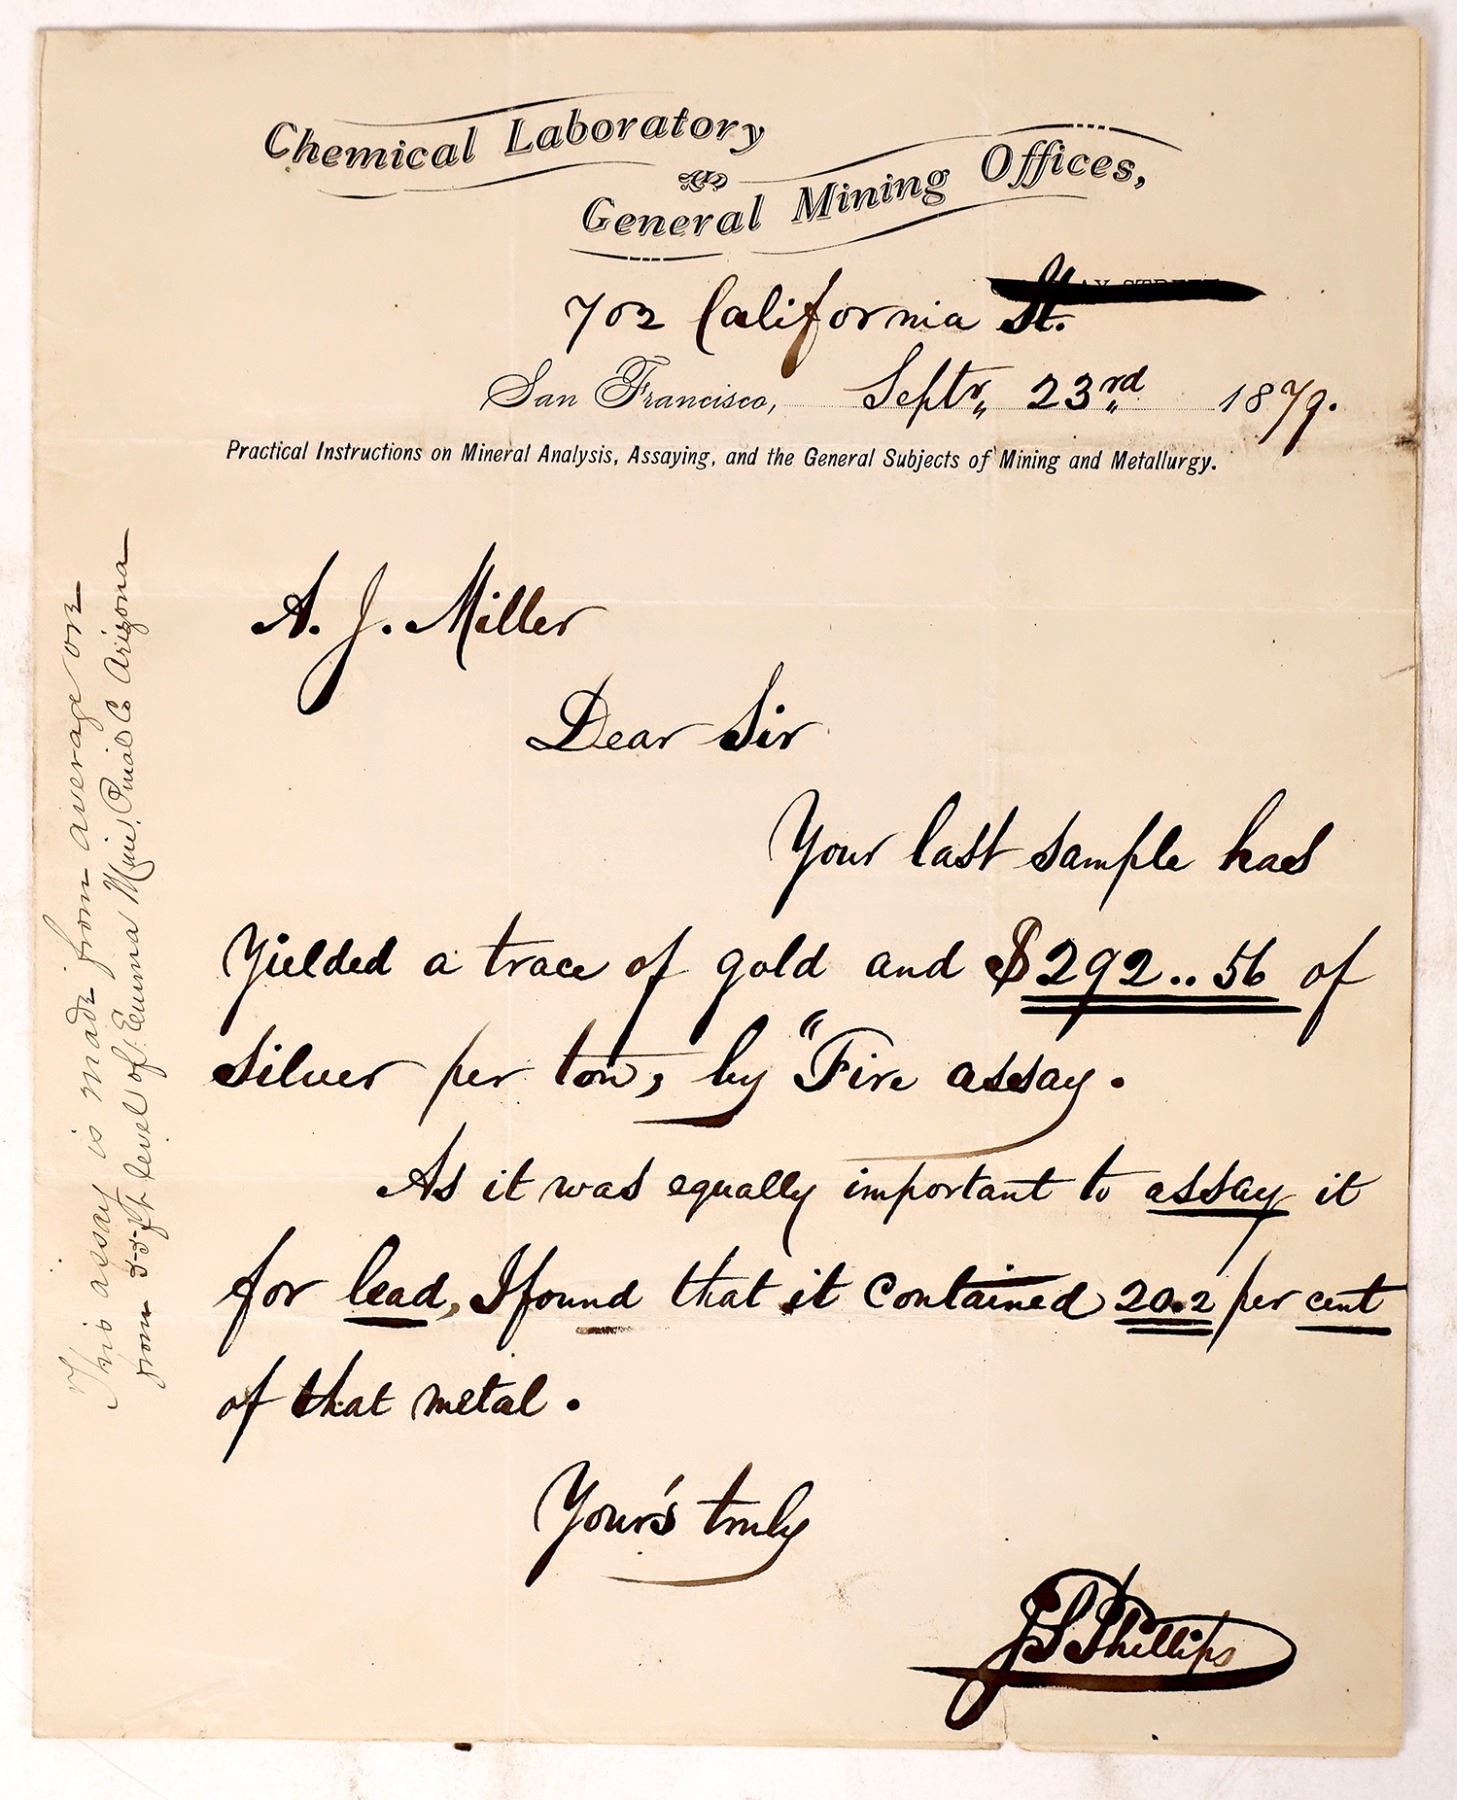 Chemical Laboratory
General Mining Offices,
702 California St.
San Francisco, Septr,, 23rd 1879.
Practical Instructions on Mineral Analysis, Assaying, and the General Subjects of Mining and Metallurgy.
A. J. Miller
Dear Sir
Your last sample has
yielded a trace of gold and $292..56 of
silver per ton, by "Fire assay.
As it was equally important to assay it
for lead, I found that it contained 20.2 per cent
of that metal.
Your's truly
JSPhillips
This assay is made from average ore
from 55 ft level of Emma Mine, Pinal Co Arizona